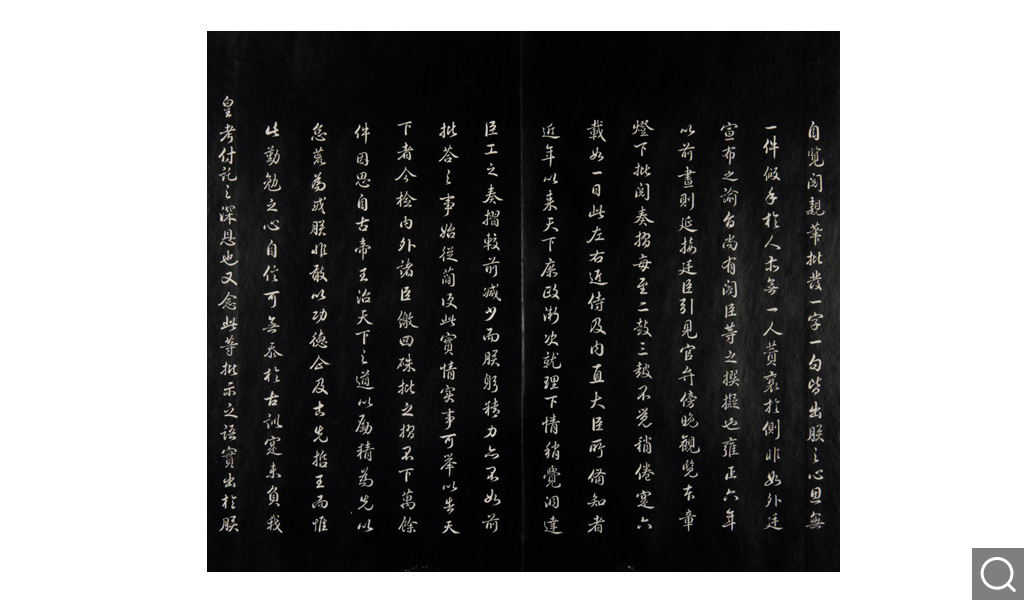 自覽閱親筆批發一字一句皆出朕之心思無
一件假手於人亦無一人贊襄於側非如外廷
宣布之諭旨尚有閣臣等之撰擬也雍正六年
以前晝則延接廷臣引見官弁傍晚觀覽本章
燈下批閱奏摺每至二鼓三鼓不覺稍倦寔六
載如一日此左右近侍及內直大臣所備知者
近年以來天下庶政漸次就理下情稍覺洞達
臣工之奏摺較前減少而朕躬精力亦不如前
批荅之事始從簡便此實情實事可舉以告天
下者今檢內外諸臣繳回硃批之摺不下萬餘
件因思自古帝王治天下之道以勵精為先以
怠荒為戒朕非敢以功德企及古先哲王而惟
此勤勉之心自信可無忝於古訓寔未負我
皇考付託之深恩也又念此等批示之語實出於朕